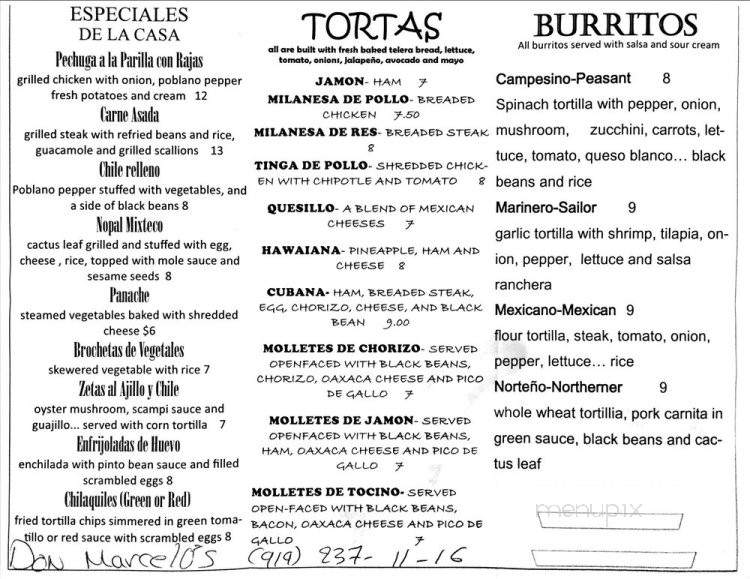 ESPECIALES
DE LA CASA
Pechuga a la Parilla con Rajas
grilled chicken with onion, poblano pepper
fresh potatoes and cream 12
Carne Asada
grilled steak with refried beans and rice,
guacamole and grilled scallions 13
Chile relleno
Poblano pepper stuffed with vegetables, and
a side of black beans 8
Nopal Mixteco
cactus leaf grilled and stuffed with egg,
cheese , rice, topped with mole sauce and
sesame seeds 8
Panache
steamed vegetables baked with shredded
cheese $6
Brochetas de Vegetales
skewered vegetable with rice 7
Zetas al Ajillo y Chile
oyster mushroom, scampi sauce and
guajillo... served with corn tortilla 7
Enfrijoladas de Huevo
enchilada with pinto bean sauce and filled
scrambled eggs 8
Chilaquiles (Green or Red)
fried tortilla chips simmered in green toma-
tillo or red sauce with scrambled eggs 8
TORTAS
all are built with fresh baked telera bread, lettuce,
tomato, onions, jalapeño, avocado and mayo
JAMON- HAM 7
MILANESA DE POLLO- BREADED
CHICKEN 7.50
MILANESA DE RES- BREADED STEAK
8
TINGA DE POLLO- SHREDDED CHICK-
EN WITH CHIPOTLE AND TOMATO 8
QUESILLO- A BLEND OF MEXICAN
CHEESES 7
HAWAIANA- PINEAPPLE, HAM AND
CHEESE 8
CUBANA- HAM, BREADED STEAK,
EGG, CHORIZO, CHEESE, AND BLACK
BEAN 9.00
MOLLETES DE CHORIZO- SERVED
OPENFACED WITH BLACK BEANS,
CHORIZO, OAXACA CHEESE AND PICO
DE GALLO 7
MOLLETES DE JAMON- SERVED
OPENFACED WITH BLACK BEANS,
HAM, OAXACA CHEESE AND PICO DE
GALLO 7
MOLLETES DE TOCINO- SERVED
OPEN-FACED WITH BLACK BEANS,
BACON, OAXACA CHEESE AND PICO DE
GALLO 7
BURRITOS
All burritos served with salsa and sour cream
Campesino-Peasant 8
Spinach tortilla with pepper, onion,
mushroom, zucchini, carrots, let-
tuce, tomato, queso blanco... black
beans and rice
Marinero-Sailor 9
garlic tortilla with shrimp, tilapia, on-
ion, pepper, lettuce and salsa
ranchera
Mexicano-Mexican 9
flour tortilla, steak, tomato, onion,
pepper, lettuce... rice
Norteño-Northerner 9
whole wheat tortillia, pork carnita in
green sauce, black beans and cac-
tus leaf
menupix
Don Marcelo's (919) 237-11-16